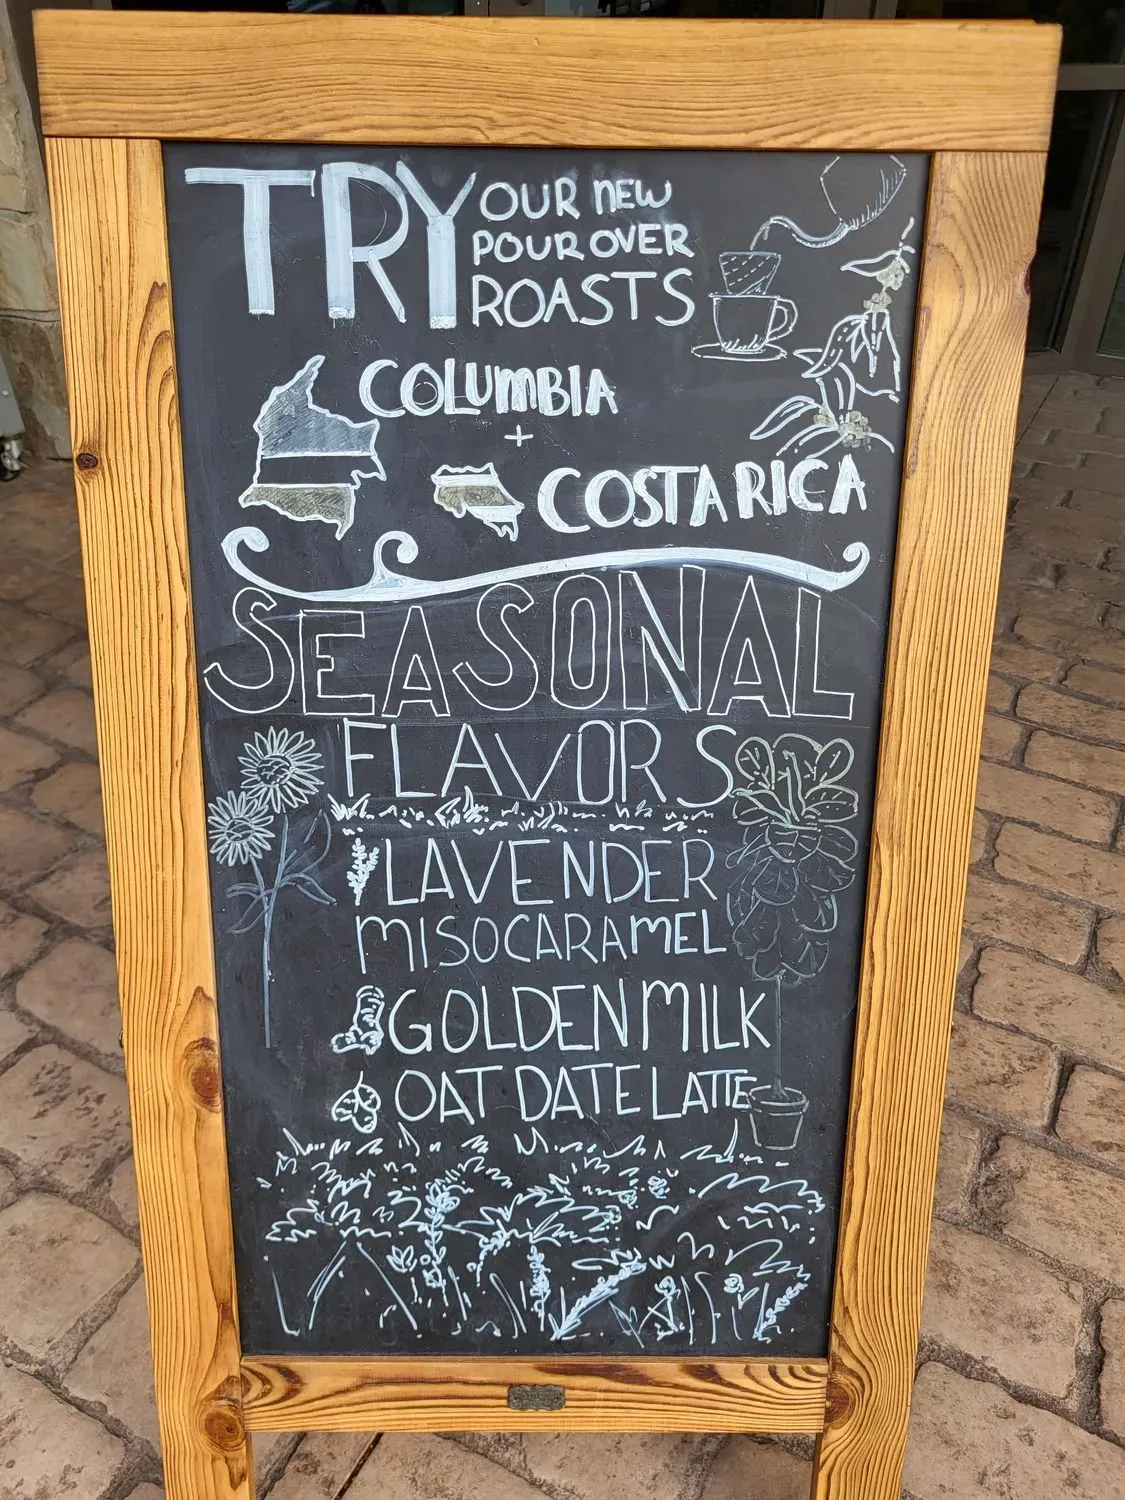 TRY OUR NEW
POUR OVER
ROASTS
COLUMBIA
+
COSTA RICA
SEASONAL
FLAVORS
LAVENDER
MISO CARAMEL
GOLDEN MILK
OAT DATE LATTE